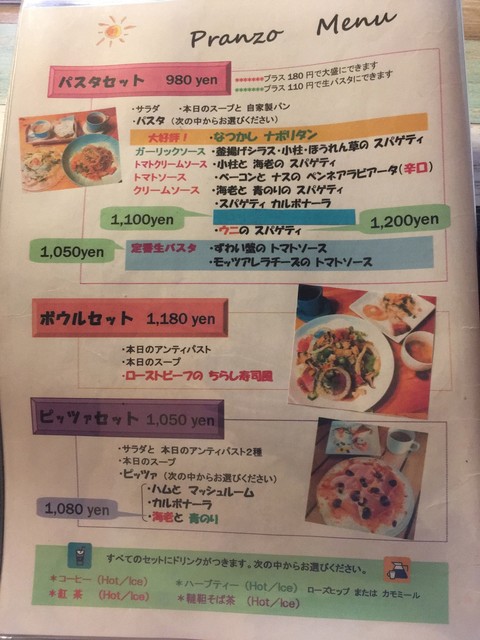 Pranzo Menu
パスタセット 980 yen
プラス 180 円で大盛にできます
プラス 110 円で生パスタにできます
・サラダ ・本日のスープと 自家製パン
・パスタ（次の中からお選びください）
大好評！ ・なつかし ナポリタン
ガーリックソース ・釜揚げシラス・小柱・ほうれん草の スパゲティ
トマトクリームソース ・小柱と 海老の スパゲティ
トマトソース ・ベーコンと ナスの ペンネアラビアータ(辛口)
クリームソース ・海老と 青のりの スパゲティ
・スパゲティ カルボナーラ
1,100yen
・ウニの スパゲティ 1,200yen
1,050yen 定番生パスタ ・ずわい蟹の トマトソース
・モッツアレラチーズの トマトソース
ボウルセット 1,180 yen
・本日のアンティパスト
・本日のスープ
・ローストビーフの ちらし寿司風
ピッツァセット 1,050 yen
・サラダと 本日のアンティパスト2種
・本日のスープ
・ピッツァ（次の中からお選びください）
・ハムと マッシュルーム
・カルボナーラ
1,080 yen ・海老と 青のり
すべてのセットにドリンクがつきます。次の中からお選びください。
＊コーヒー (Hot／Ice) ＊ハーブティー (Hot／Ice) ローズヒップ または カモミール
＊紅 茶 (Hot／Ice) ＊韃靼そば茶 (Hot／Ice)